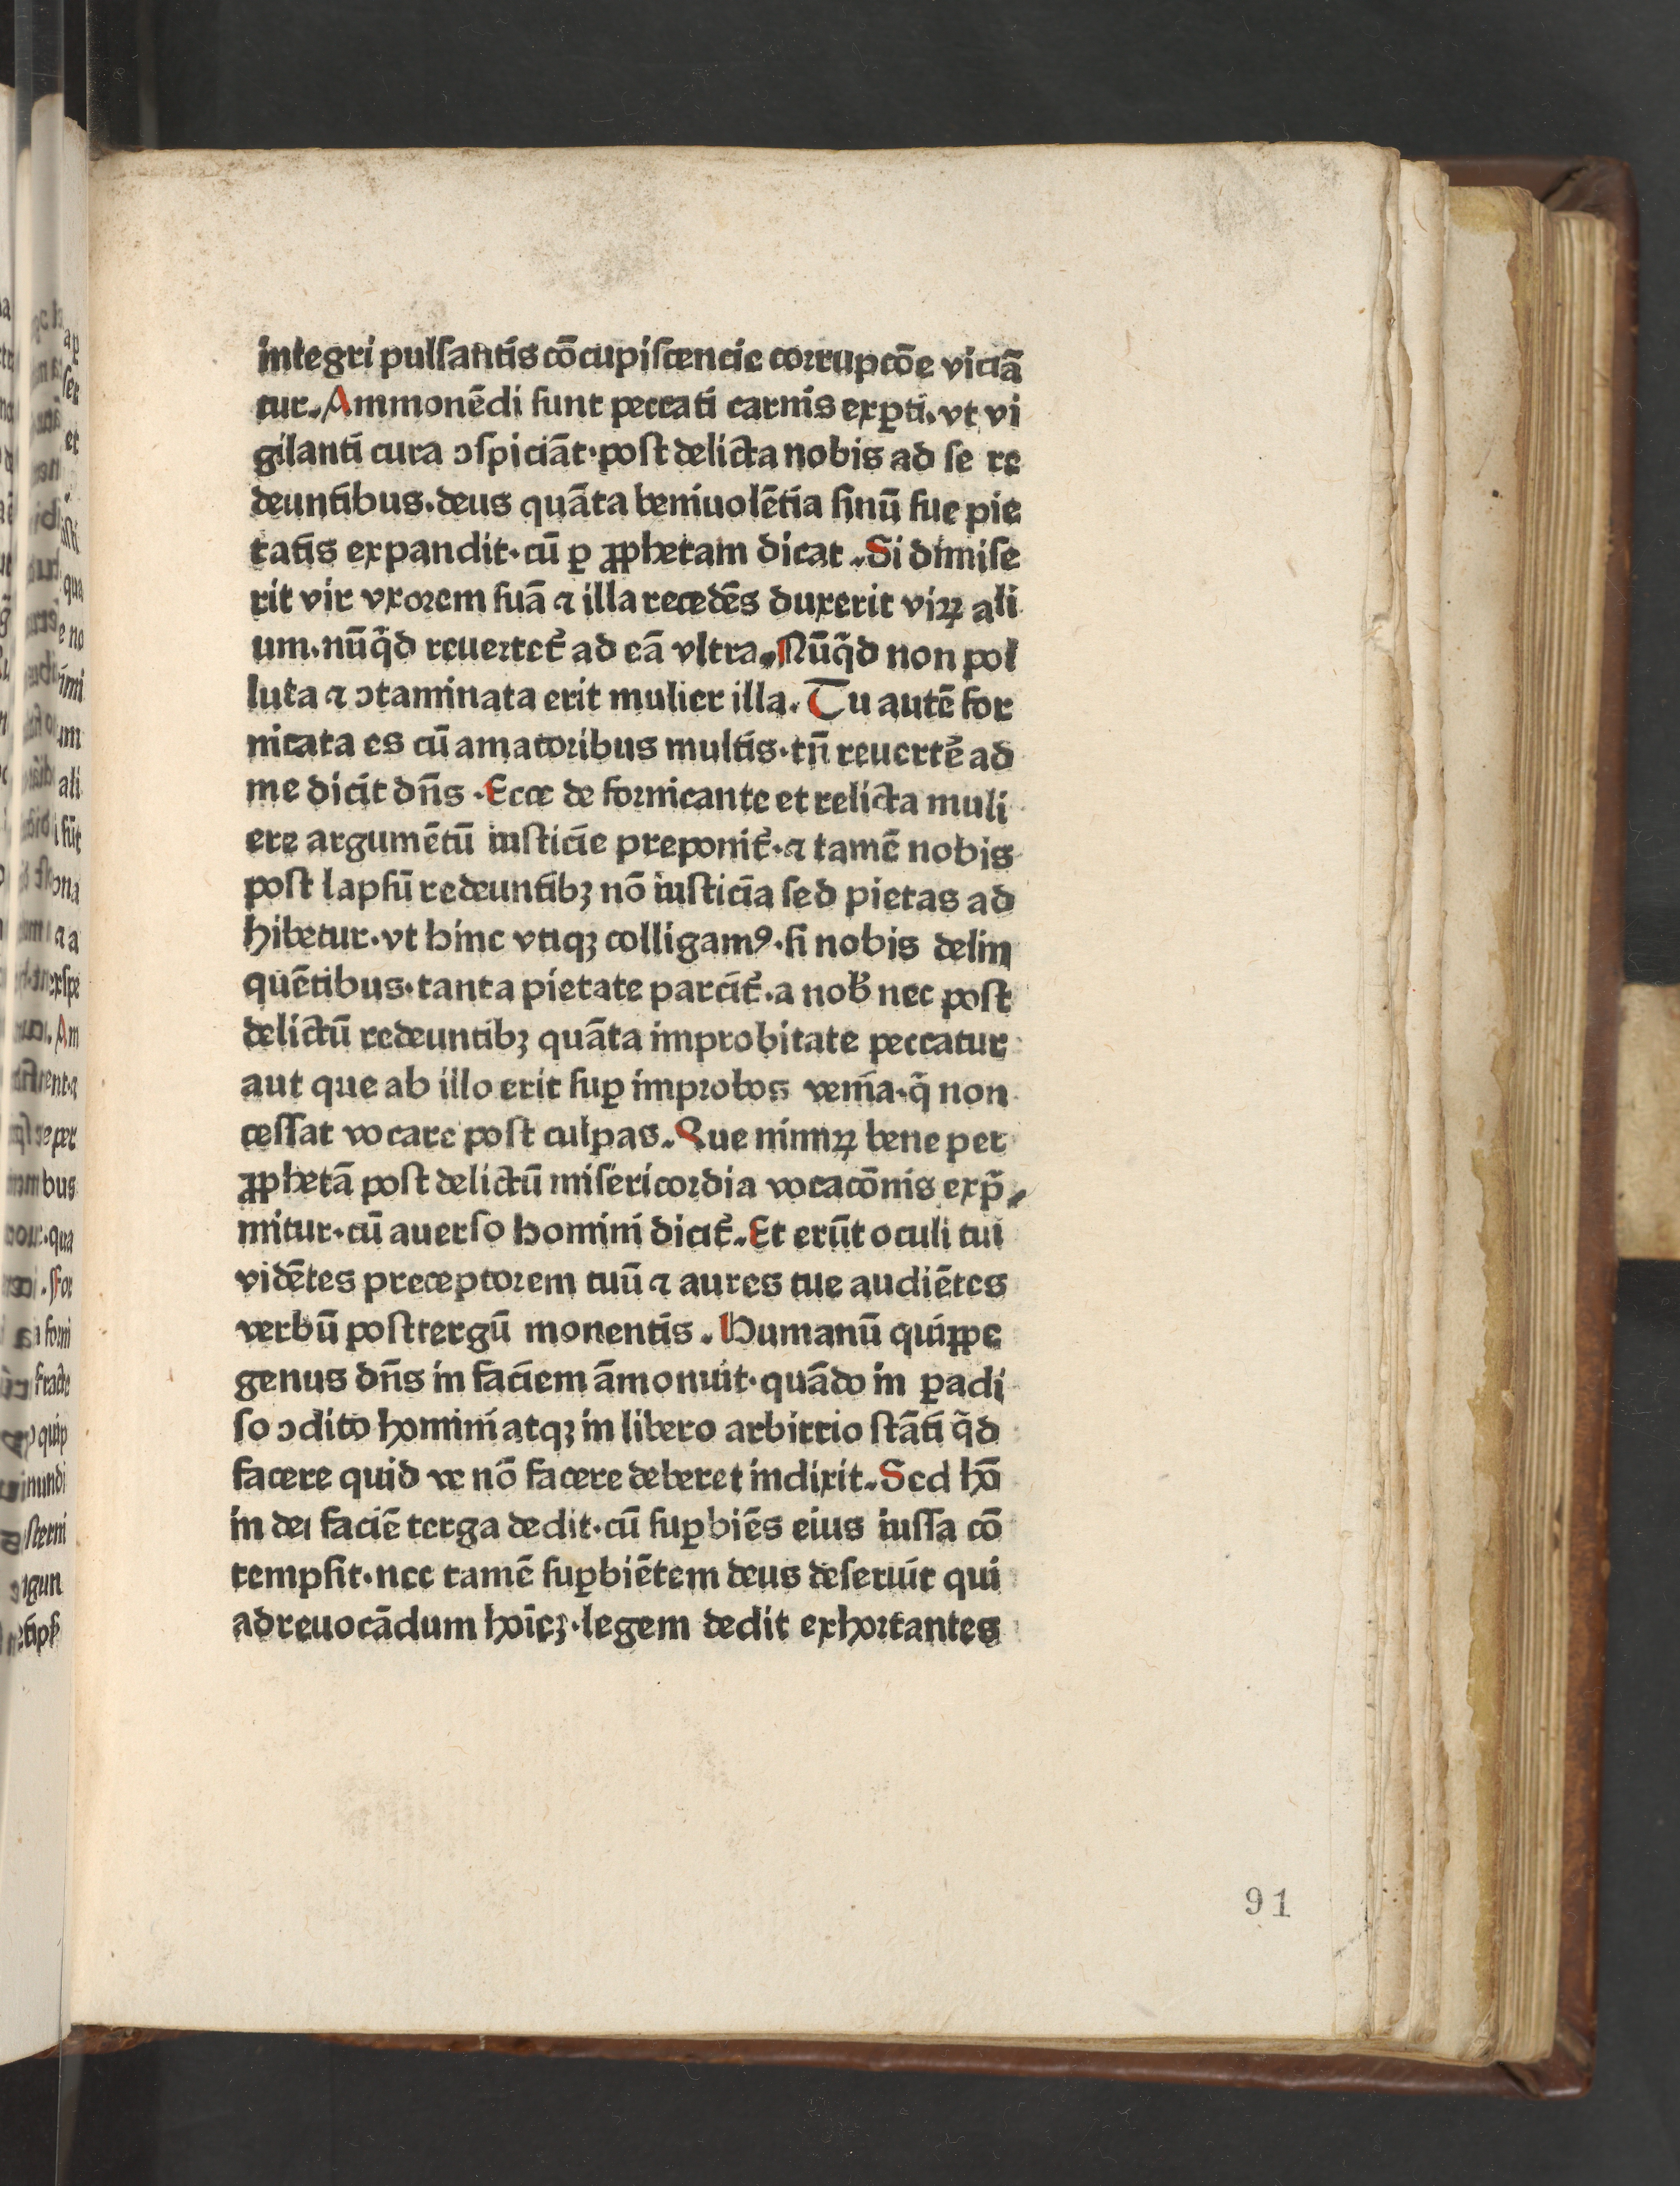 integri pulsantis cōcupiscencie corrupcōe viciā
tur. Ammonēdi sunt peccati carnis exꝑti. vt vi
gilanti cura ɔspiciāt · post delicta nobis ad se re
deuntibus. deus quāta beniuolētia sinū sue pie
tatis expandit · cū ꝑ ꝓphetam dicat. Si dimise
rit vir vxorem suā ⁊ illa recedēs duxerit viꝝ ali
um. nūq̄d reuertet᷑ ad eā vltra. Nūq̄d non pol
luta ⁊ ɔtaminata erit mulier illa. Tu autē for
nicata es cū amatoribus multis · tn̄ reuertē ad
me dicit dn̄s. Ecce de fornicante et relicta muli
ere argumētū iusticie preponit᷑ · ⁊ tamē nobis
post lapsū redeuntibꝫ nō iusticia sed pietas ad
hibetur · vt hinc vtiqꝫ colligamꝰ · si nobis delin
quētibus · tanta pietate parcit᷑ · a nob̄ nec post
delictū redeuntibꝫ quāta improbitate peccatur
aut que ab illo erit suꝑ improbos venia · q̄ non
cessat vocare post culpas. Que nimiꝝ bene per
ꝓphetā post delictū misericordia vocacōnis exp̄
mitur · cū auerso homini dicit᷑. Et erūt oculi tui
vidētes preceptorem tuū ⁊ aures tue audiētes
verbū post tergū monentis. Humanū quiꝓpe
genus dn̄s in faciem āmonuit · quādo in ꝑadi
so ɔdito homini atqꝫ in libero arbitrio stāti q̄d
facere quid ve nō facere deberet indixit. Sed hō
in dei faciē terga dedit · cū suꝑbiēs eius iussa cō
tempsit · nec tamē suꝑbiētem deus deseruit qui
ad reuocādum hoīeꝫ · legem dedit exhortantes
91